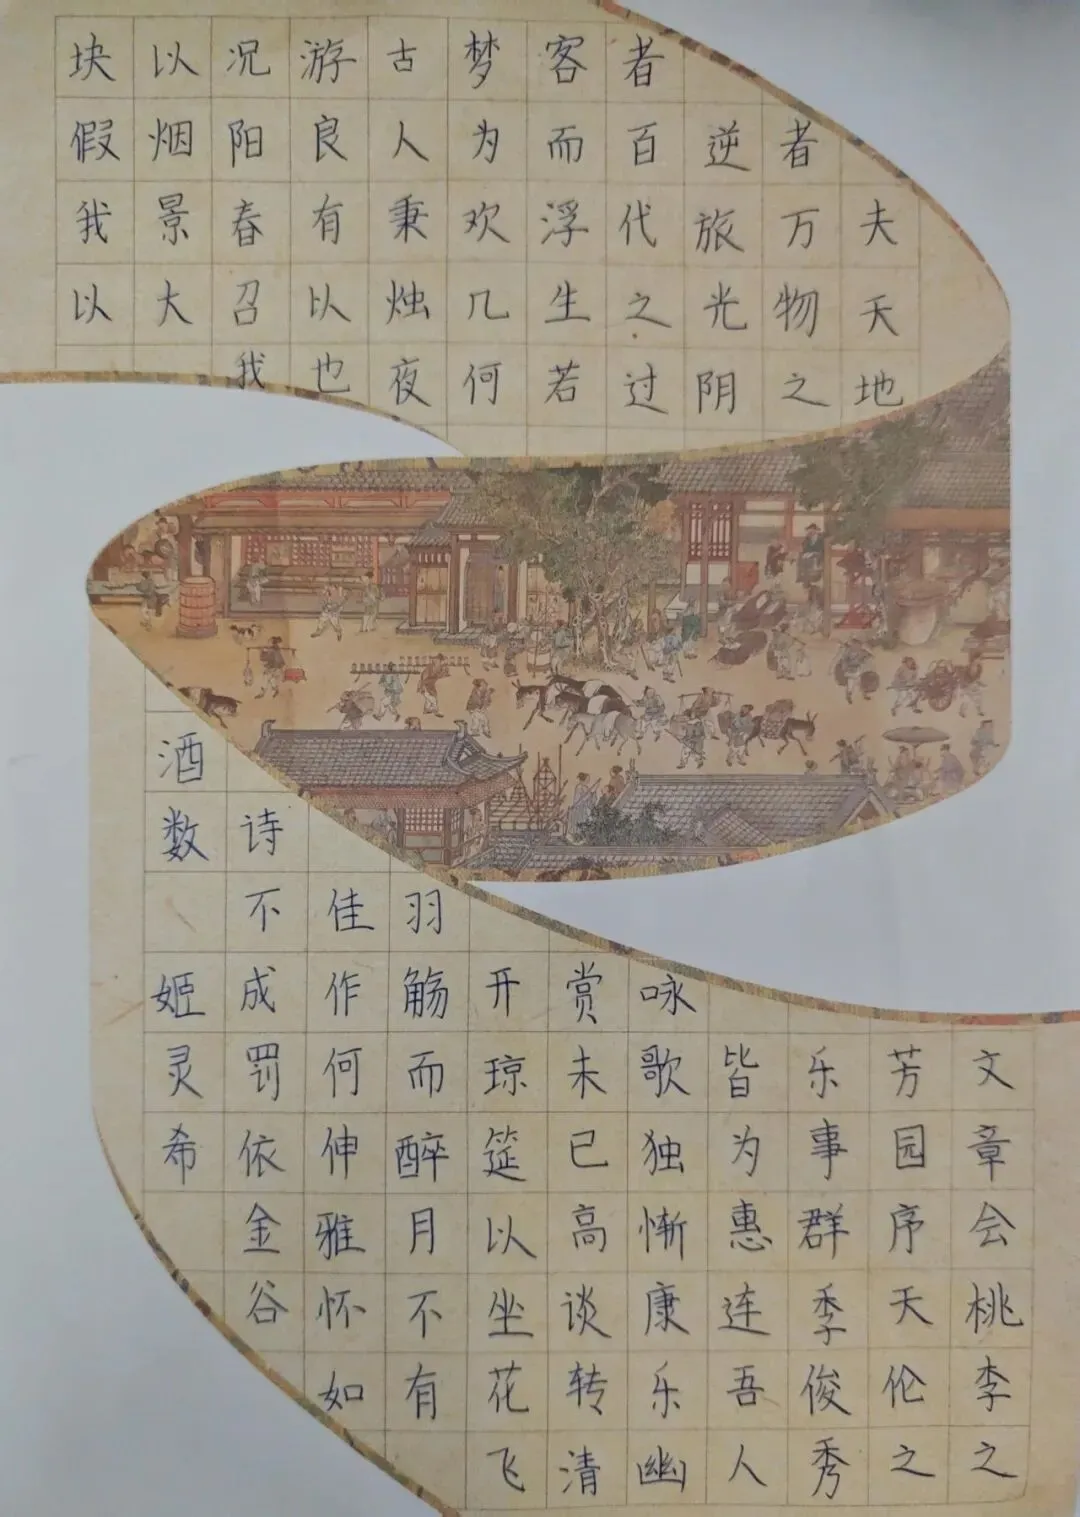 夫天地
者万物之
逆旅光阴
者百代之过
客而浮生若
梦为欢几何
古人秉烛夜
游良有以也
况阳春召我
以烟景大
块假我以
文章会桃李之
芳园序天伦之
乐事群季俊秀
皆为惠连吾人
咏歌独惭康乐幽
赏未已高谈转清
开琼筵以坐花飞
羽觞而醉月不有
佳作何伸雅怀如
诗不成罚依金谷
酒数 姬灵希